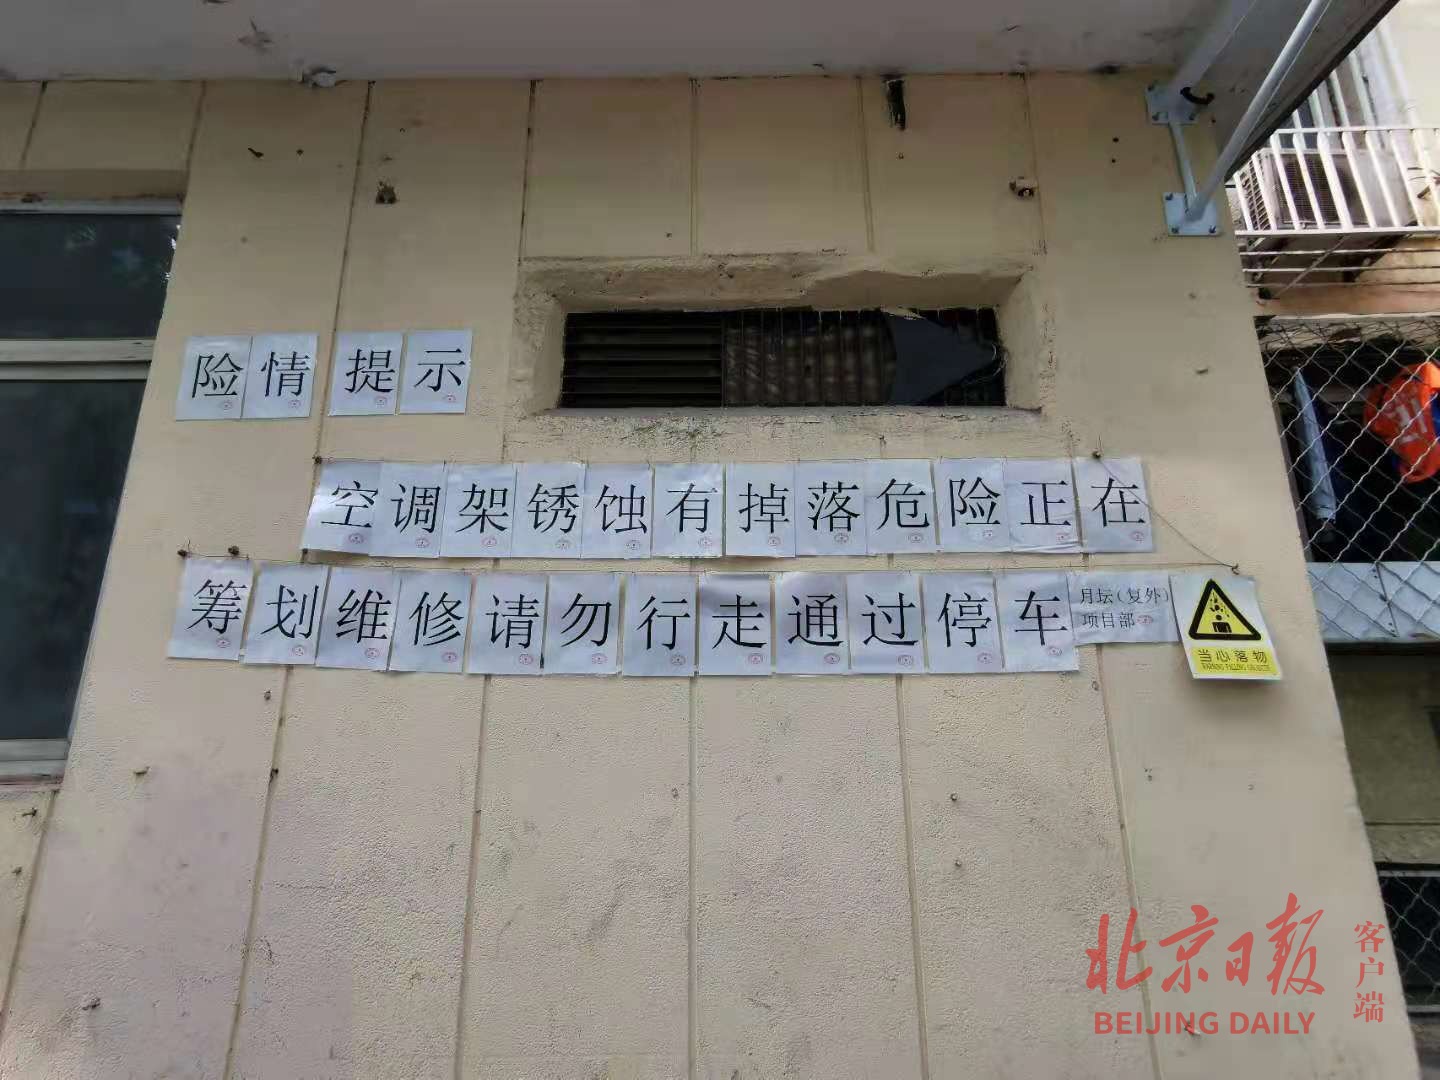 险情 提示
空调架锈蚀有掉落危险正在
筹划维修请勿行走通过停车
月坛(复外)
项目部
当心落物
WARNING FALLING OBJECTS
北京日报
客户端
BEIJING DAILY